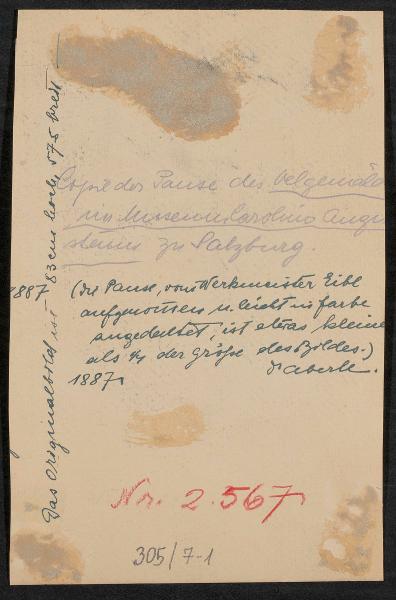 Copie der Pause des Oelgemäld
im Museum Carolino Augu
steum zu Salzburg.
1887 (die Pause, vom Werkmeister Eibl
aufgenommen u. leicht in farbe
angedeutet, ist etwas kleine
als ¼ der größe des Bildes.)
1887. Aberle.
Das Originalbild ist 83 cm hoch 575 breit
Nr. 2.567
305/7-1